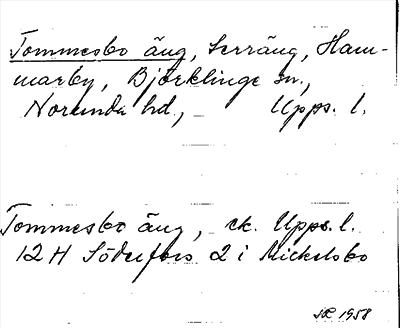 Tommesbo äng, Serräng, Ham-
marby, Björklinge sn.,
Norunda hd., Upps. l.
Tommesbo äng, ek. Upps. l.
12 H Söderfors 2 i Mickelsbo
1958